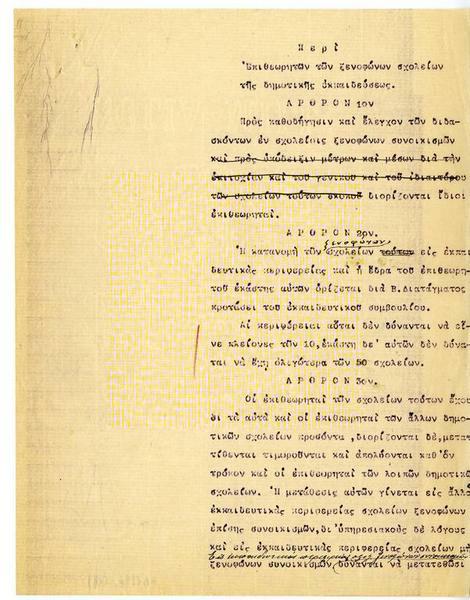 Περί
Ἐπιθεωρητῶν τῶν ξενοφώνων σχολείων
τῆς δημοτικῆς ἐκπαιδεύσεως.
ΑΡΘΡΟΝ 1ον
Πρὸς καθοδήγησιν καὶ ἔλεγχον τῶν διδα-
σκόντων ἐν σχολείοις ξενοφώνων συνοικισμῶν
καὶ πρὸς ὑπόδειξιν μέτρων καὶ μέσων διὰ τὴν
ἐπιτυχίαν καὶ τοῦ γενικοῦ καὶ τοῦ ἰδιαιτέρου
τῶν σχολείων τούτων σκοποῦ διορίζονται ἴδιοι
ἐπιθεωρηταί.
ΑΡΘΡΟΝ 2ρν.
ξενοφώνων
Ἡ κατανομὴ τῶν σχολείων τούτων εἰς ἐκπαι
δευτικὰς περιφερείας καὶ ἡ ἕδρα τοῦ ἐπιθεωρη-
τοῦ ἑκάστης αὐτῶν ὁρίζεται διὰ Β.διατάγματος
προτάσει τοῦ ἐκπαιδευτικοῦ συμβουλίου.
Αἱ περιφέρειαι αὗται δὲν δύνανται νὰ εἶ-
νε πλείονες τῶν 10, ἑκάστη δ' αὐτῶν δὲν δύνα-
ται νὰ ἔχῃ ὀλιγώτερα τῶν 50 σχολείων.
ΑΡΘΡΟΝ 3ον.
Οἱ ἐπιθεωρηταὶ τῶν σχολείων τούτων ἔχου
σι τὰ αὐτὰ καὶ οἱ ἐπιθεωρηταὶ τῶν ἄλλων δημο-
τικῶν σχολείων προσόντα, διορίζονται δέ, μετα
τίθενται τιμωροῦνται καὶ ἀπολύονται καθ' ὃν
τρόπον καὶ οἱ ἐπιθεωρηταὶ τῶν λοιπῶν δημοτικῶ
σχολείων. Ἡ μετάθεσις αὐτῶν γίνεται εἰς ἄλλα
ἐκπαιδευτικὰς περιφερείας σχολείων ξενοφώνων
ἐπίσης συνοικισμῶν, δι' ὑπηρεσιακοὺς δὲ λόγους
καὶ εἰς ἐκπαιδευτικὰς περιφερείας σχολείων μὴ
ξενοφώνων συνοικισμῶν, δύνανται νὰ μετατεθῶσι